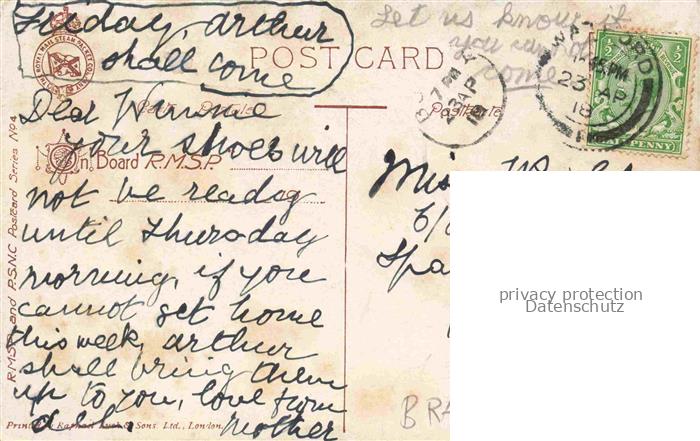 Friday, arthur
shall come
Let us know if
you
come
POST CARD
ROYAL MAIL STEAM PACKET COMPANY
WATFORD
23 AP
18
7 PM
23 AP
18
HALFPENNY
Carte Postale
Postkarte
Dear Winnie
your shoes will
On Board R.M.S.P.
not be ready
until Thursday
morning, if you
cannot get home
this week, arthur
shall bring them
up to you, love from
all, mother
Miss
Spa
BRA
R.M.S.P. and P.S.N.C Postcard Series No 4
Printed by Raphael Tuck & Sons. Ltd., London.
privacy protection
Datenschutz